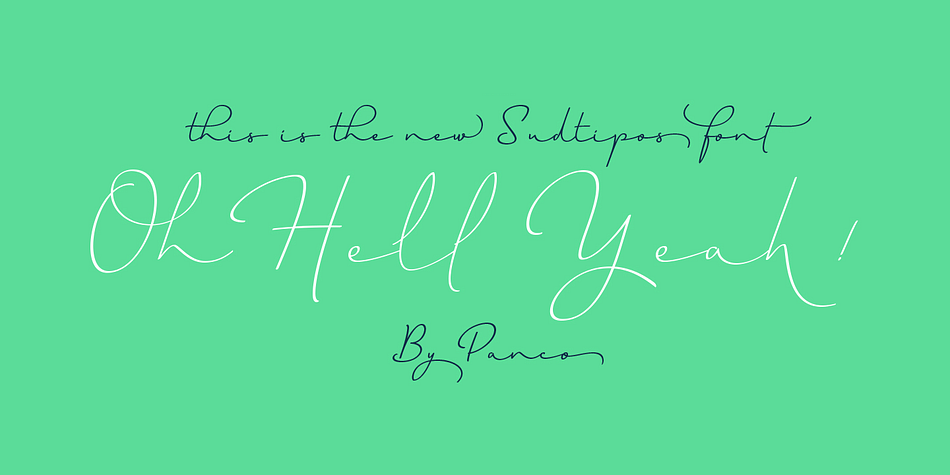 this is the new Sudtipos font
Oh Hell Yeah!
By Panco